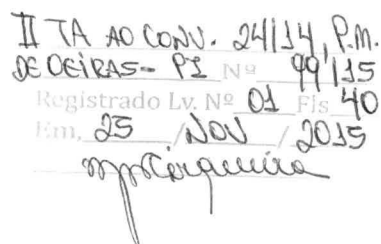 II TA AO CONV. 24/14, P.M.
DE OEIRAS - PI Nº 99/15
Registrado Lv. Nº 01 Fls 40
Em, 25 / NOV / 2015